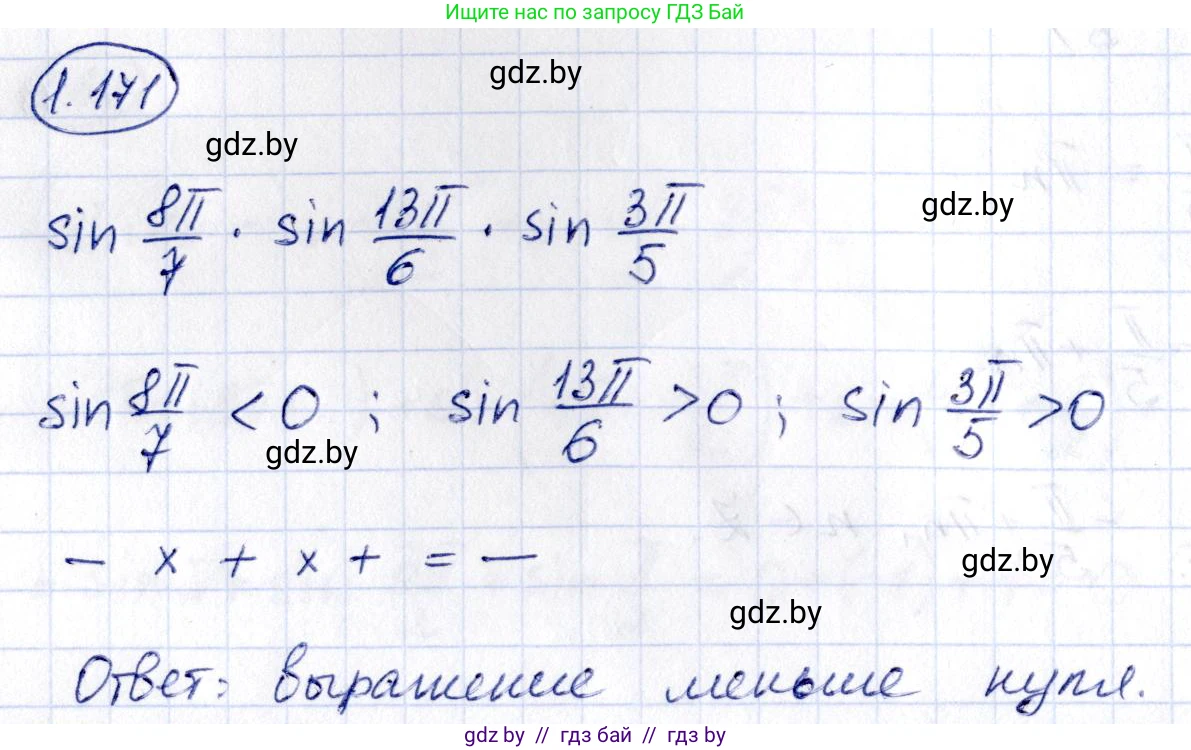 Ищите нас по запросу ГДЗ Бай
1.171
gdz.by
gdz.by
sin 8π/7 · sin 13π/6 · sin 3π/5
gdz.by
sin 8π/7 < 0 ; sin 13π/6 > 0 ; sin 3π/5 > 0
gdz.by
– x + x + = –
gdz.by
gdz.by
Ответ: выражение меньше нуля.
gdz.by // гдз бай // гдз by